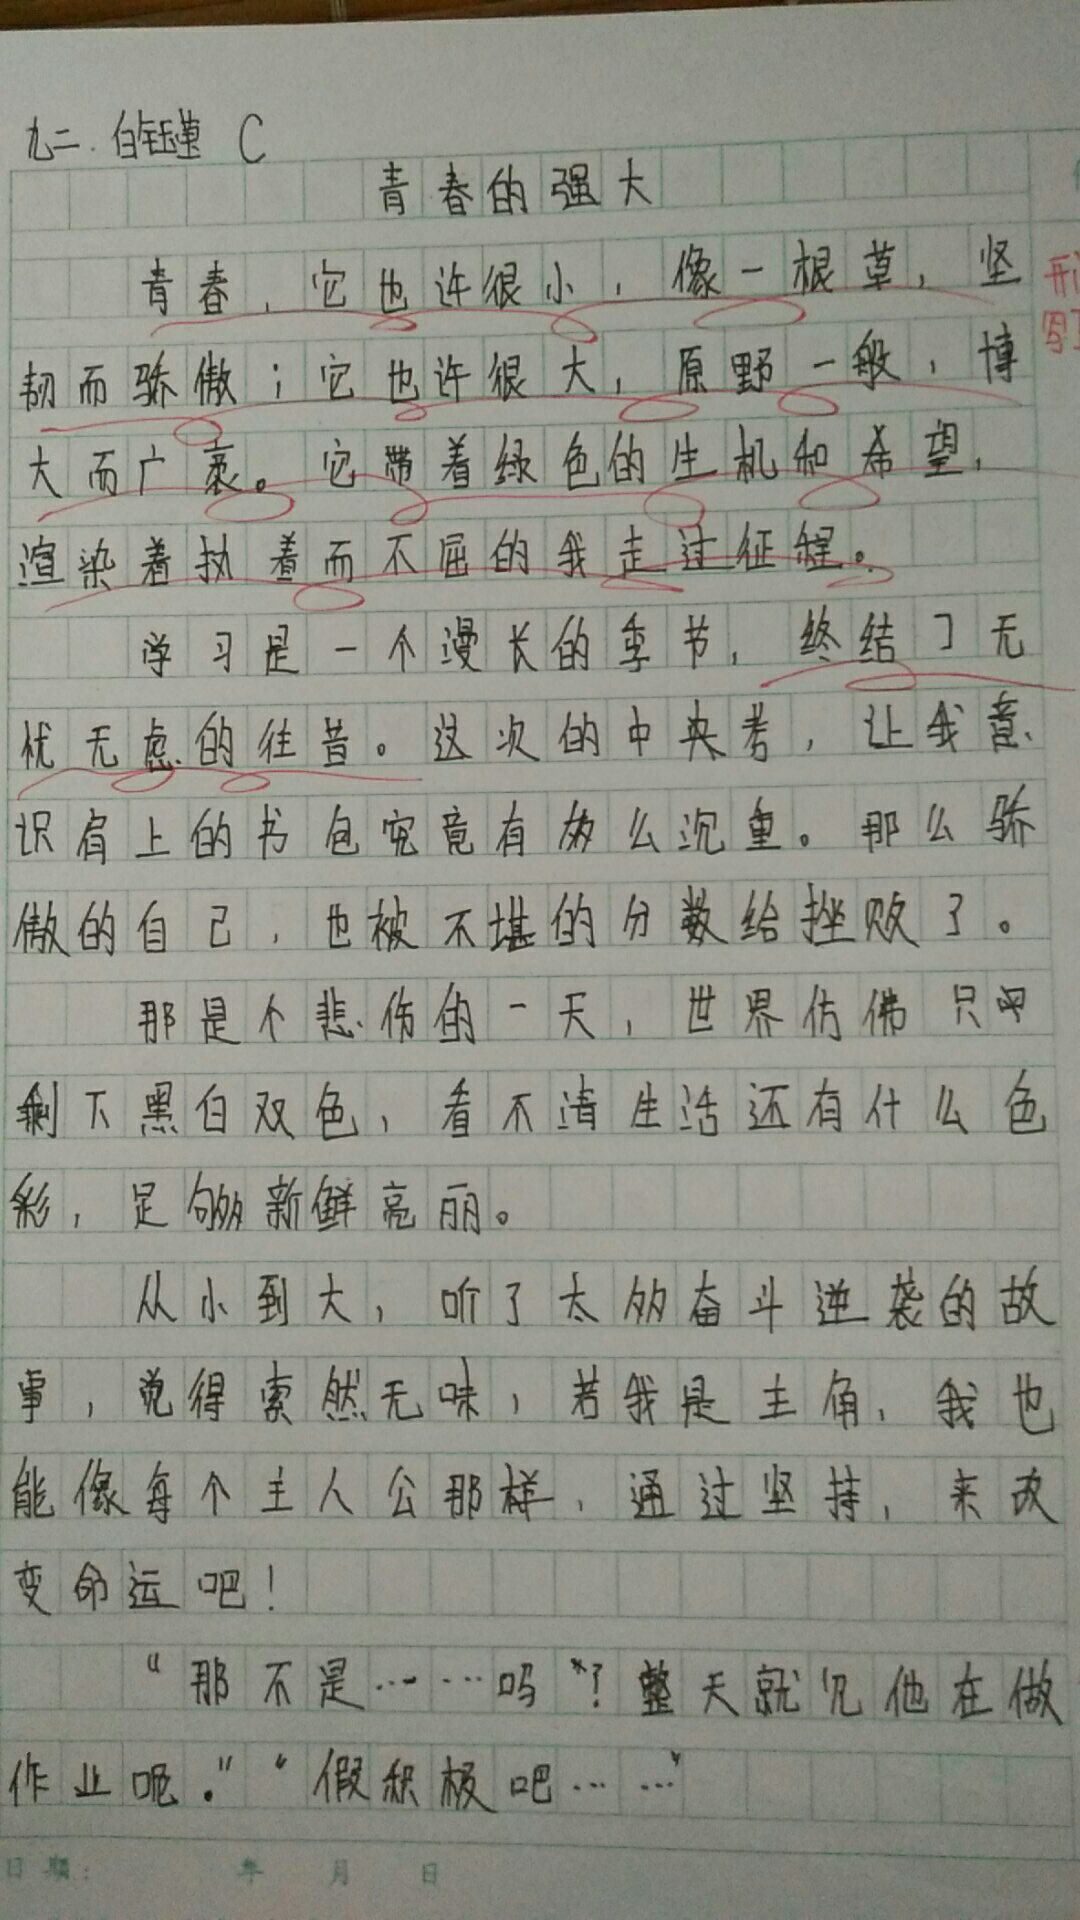 九二. 白钰莲 C
青春的强大
青春，它也许很小，像一根草，坚
韧而骄傲；它也许很大，原野一般，博
大而广袤。它带着绿色的生机和希望，
渲染着执着而不屈的我走过征程。
学习是一个漫长的季节，终结了无
忧无虑的往昔。这次的中央考，让我意
识肩上的书包究竟有多么沉重。那么骄
傲的自己，也被不堪的分数给挫败了。
那是个悲伤的一天，世界仿佛只
剩下黑白双色，看不清生活还有什么色
彩，足够新鲜亮丽。
从小到大，听了太多奋斗逆袭的故
事，觉得索然无味，若我是主角，我也
能像每个主人公那样，通过坚持，来改
变命运吧！
“那不是……吗”？整天就见他在做
作业呢。”“假积极吧……”
日期： 年 月 日